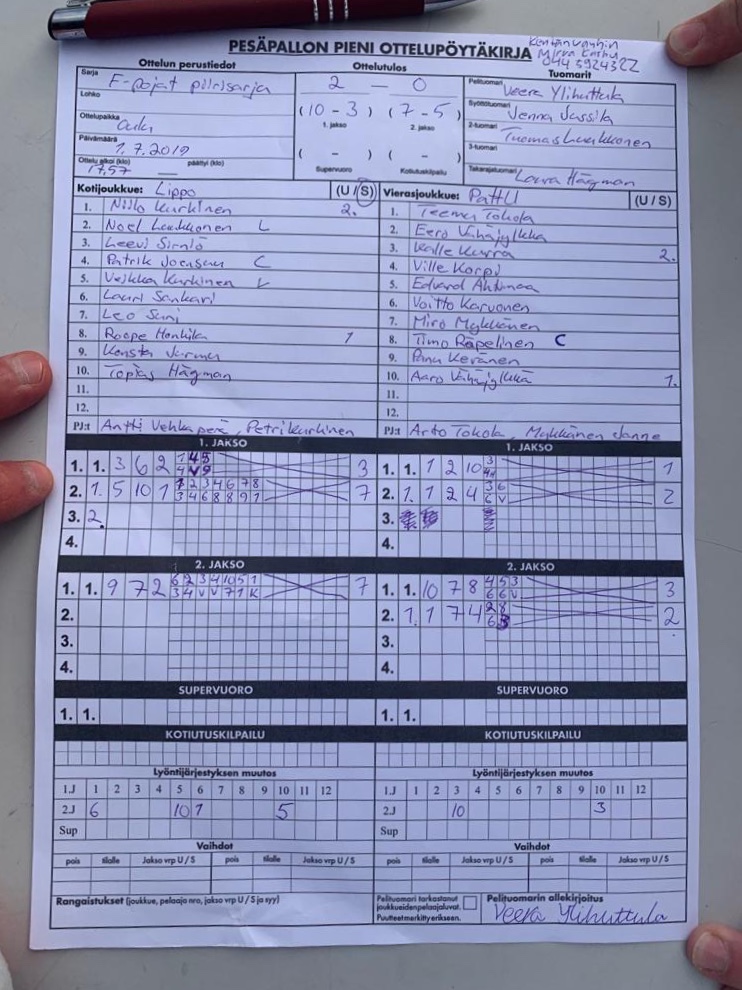 PESÄPALLON PIENI OTTELUPÖYTÄKIRJA
Kentänvanhin
Ottelun perustiedot
Ottelutulos
Tuomarit
Sarja F-pojat piirisarja
Lohko
Ottelupaikka Oulu
Päivämäärä 1.7.2019
Ottelu alkoi (klo) 17.57 päättyi (klo) —
2 — 0
(10 - 3) (7 - 5)
1. jakso 2. jakso
( - ) ( - )
Supervuoro Kotiutuskilpailu
Pelituomari Veera Ylihuttula
Syöttötuomari Jenna Jussila
2-tuomari Tuomas Luukkonen
3-tuomari
Takarajatuomari Laura Hägman
Kotijoukkue: Lippo (U / S)
1. Niilo Kurkinen 2.
2. Noel Luukkonen L
3. Leevi Sirniö
4. Patrik Joensuu C
5. Veikka Kurkinen
6. Lauri Sankari
7. Leo Suni
8. Roope Honkila 1
9. Konsta
10. Topias Hägman
11.
12.
PJ:t Antti Vehkaperä, Petri Kurkinen
Vierasjoukkue: PattU (U / S)
1. Teemu Tokola
2. Eero Vähäjylkkä
3. Kalle Kurra 2.
4. Ville Korpi
5. Edvard
6. Voitto Karvonen
7. Miro Mykkänen
8. Timo Räpelinen C
9. Panu Keränen
10. Aaro Vähäjylkkä 1.
11.
12.
PJ:t Arto Tokola, Mykkänen Janne
1. JAKSO
1. 1. 3 6 2 3
2. 1. 5 10 1 7
3. 2.
4.
1. JAKSO
1. 1. 1 2 10 1
2. 1. 1 2 4 2
3.
4.
2. JAKSO
1. 1. 9 7 2 6 2 3 4 10 5 1 7
3 4 V V 7 1 K
2.
3.
4.
2. JAKSO
1. 1. 10 7 8 4 5 3 3
6 6 V
2. 1. 1 7 4 2 8 2
3.
4.
SUPERVUORO
1. 1.
SUPERVUORO
1. 1.
KOTIUTUSKILPAILU
KOTIUTUSKILPAILU
Lyöntijärjestyksen muutos
1.J 1 2 3 4 5 6 7 8 9 10 11 12
2.J 6 10 1 5
Sup
Lyöntijärjestyksen muutos
1.J 1 2 3 4 5 6 7 8 9 10 11 12
2.J 10 3
Sup
Vaihdot
pois tilalle Jakso vrp U / S pois tilalle Jakso vrp U / S
Vaihdot
pois tilalle Jakso vrp U / S pois tilalle Jakso vrp U / S
Rangaistukset (joukkue, pelaaja nro, jakso vrp U / S ja syy)
Pelituomari tarkastanut
joukkueiden pelaajaluvat.
Puutteet merkitty erikseen.
Pelituomarin allekirjoitus
Veera Ylihuttula